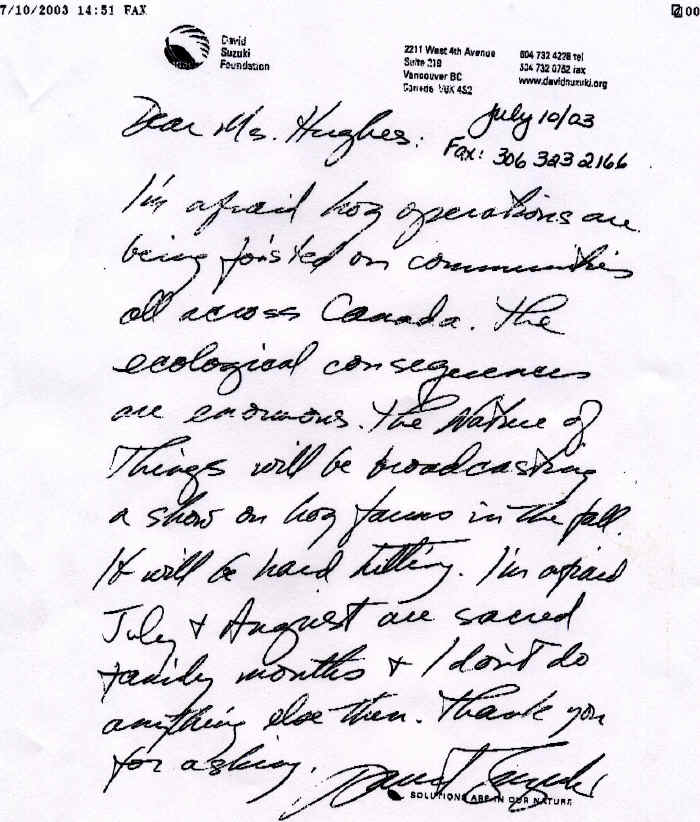 7/10/2003 14:51 FAX
David
Suzuki
Foundation
2211 West 4th Avenue
Suite 219
Vancouver BC
Canada V6K 4S2
604 732 4228 tel
604 732 0752 fax
www.davidsuzuki.org
July 10/03
Fax: 306 323 2166
Dear Ms. Hughes:
I'm afraid hog operations are
being foisted on communities
all across Canada. The
ecological consequences
are enormous. The Nature of
Things will be broadcasting
a show on hog farms in the fall.
It will be hard hitting. I'm afraid
July & August are sacred
family months & I don't do
anything else then. Thank you
for asking.
David Suzuki
SOLUTIONS ARE IN OUR NATURE